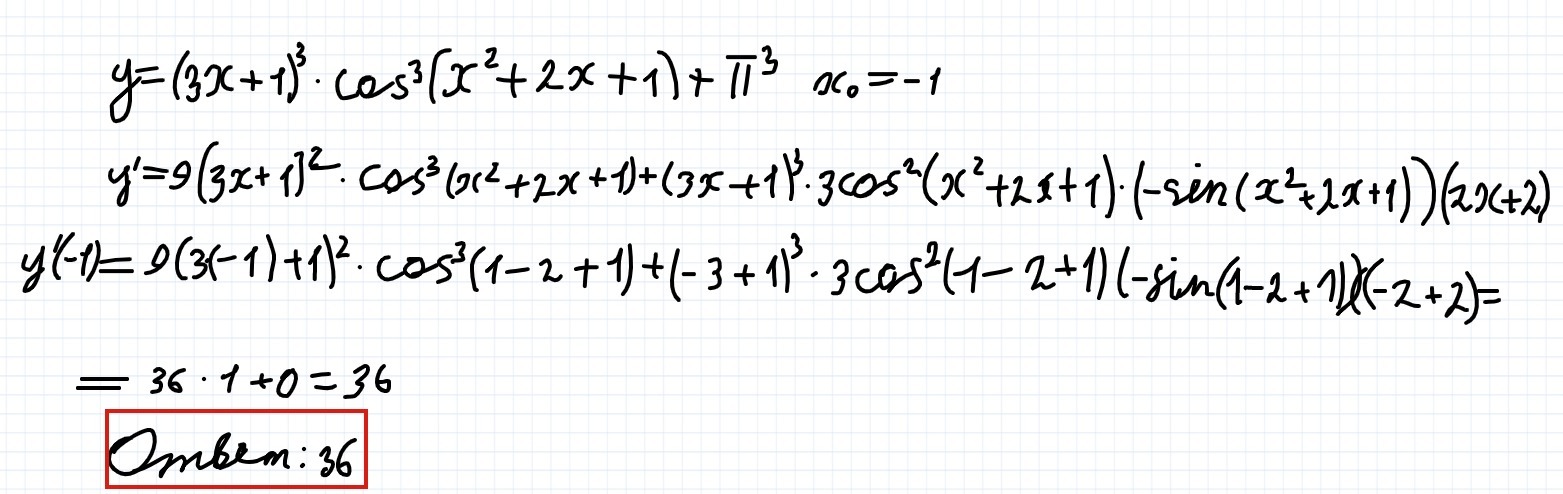 y=(3x+1)³·cos³(x²+2x+1)+π³ x₀=-1
y'=9(3x+1)²·cos³(x²+2x+1)+(3x+1)³·3cos²(x²+2x+1)·(-sin(x²+2x+1))(2x+2)
y'(-1)=9(3(-1)+1)²·cos³(1-2+1)+(-3+1)³·3cos²(1-2+1)(-sin(1-2+1))(-2+2)=
=36·1+0=36
Ответ: 36